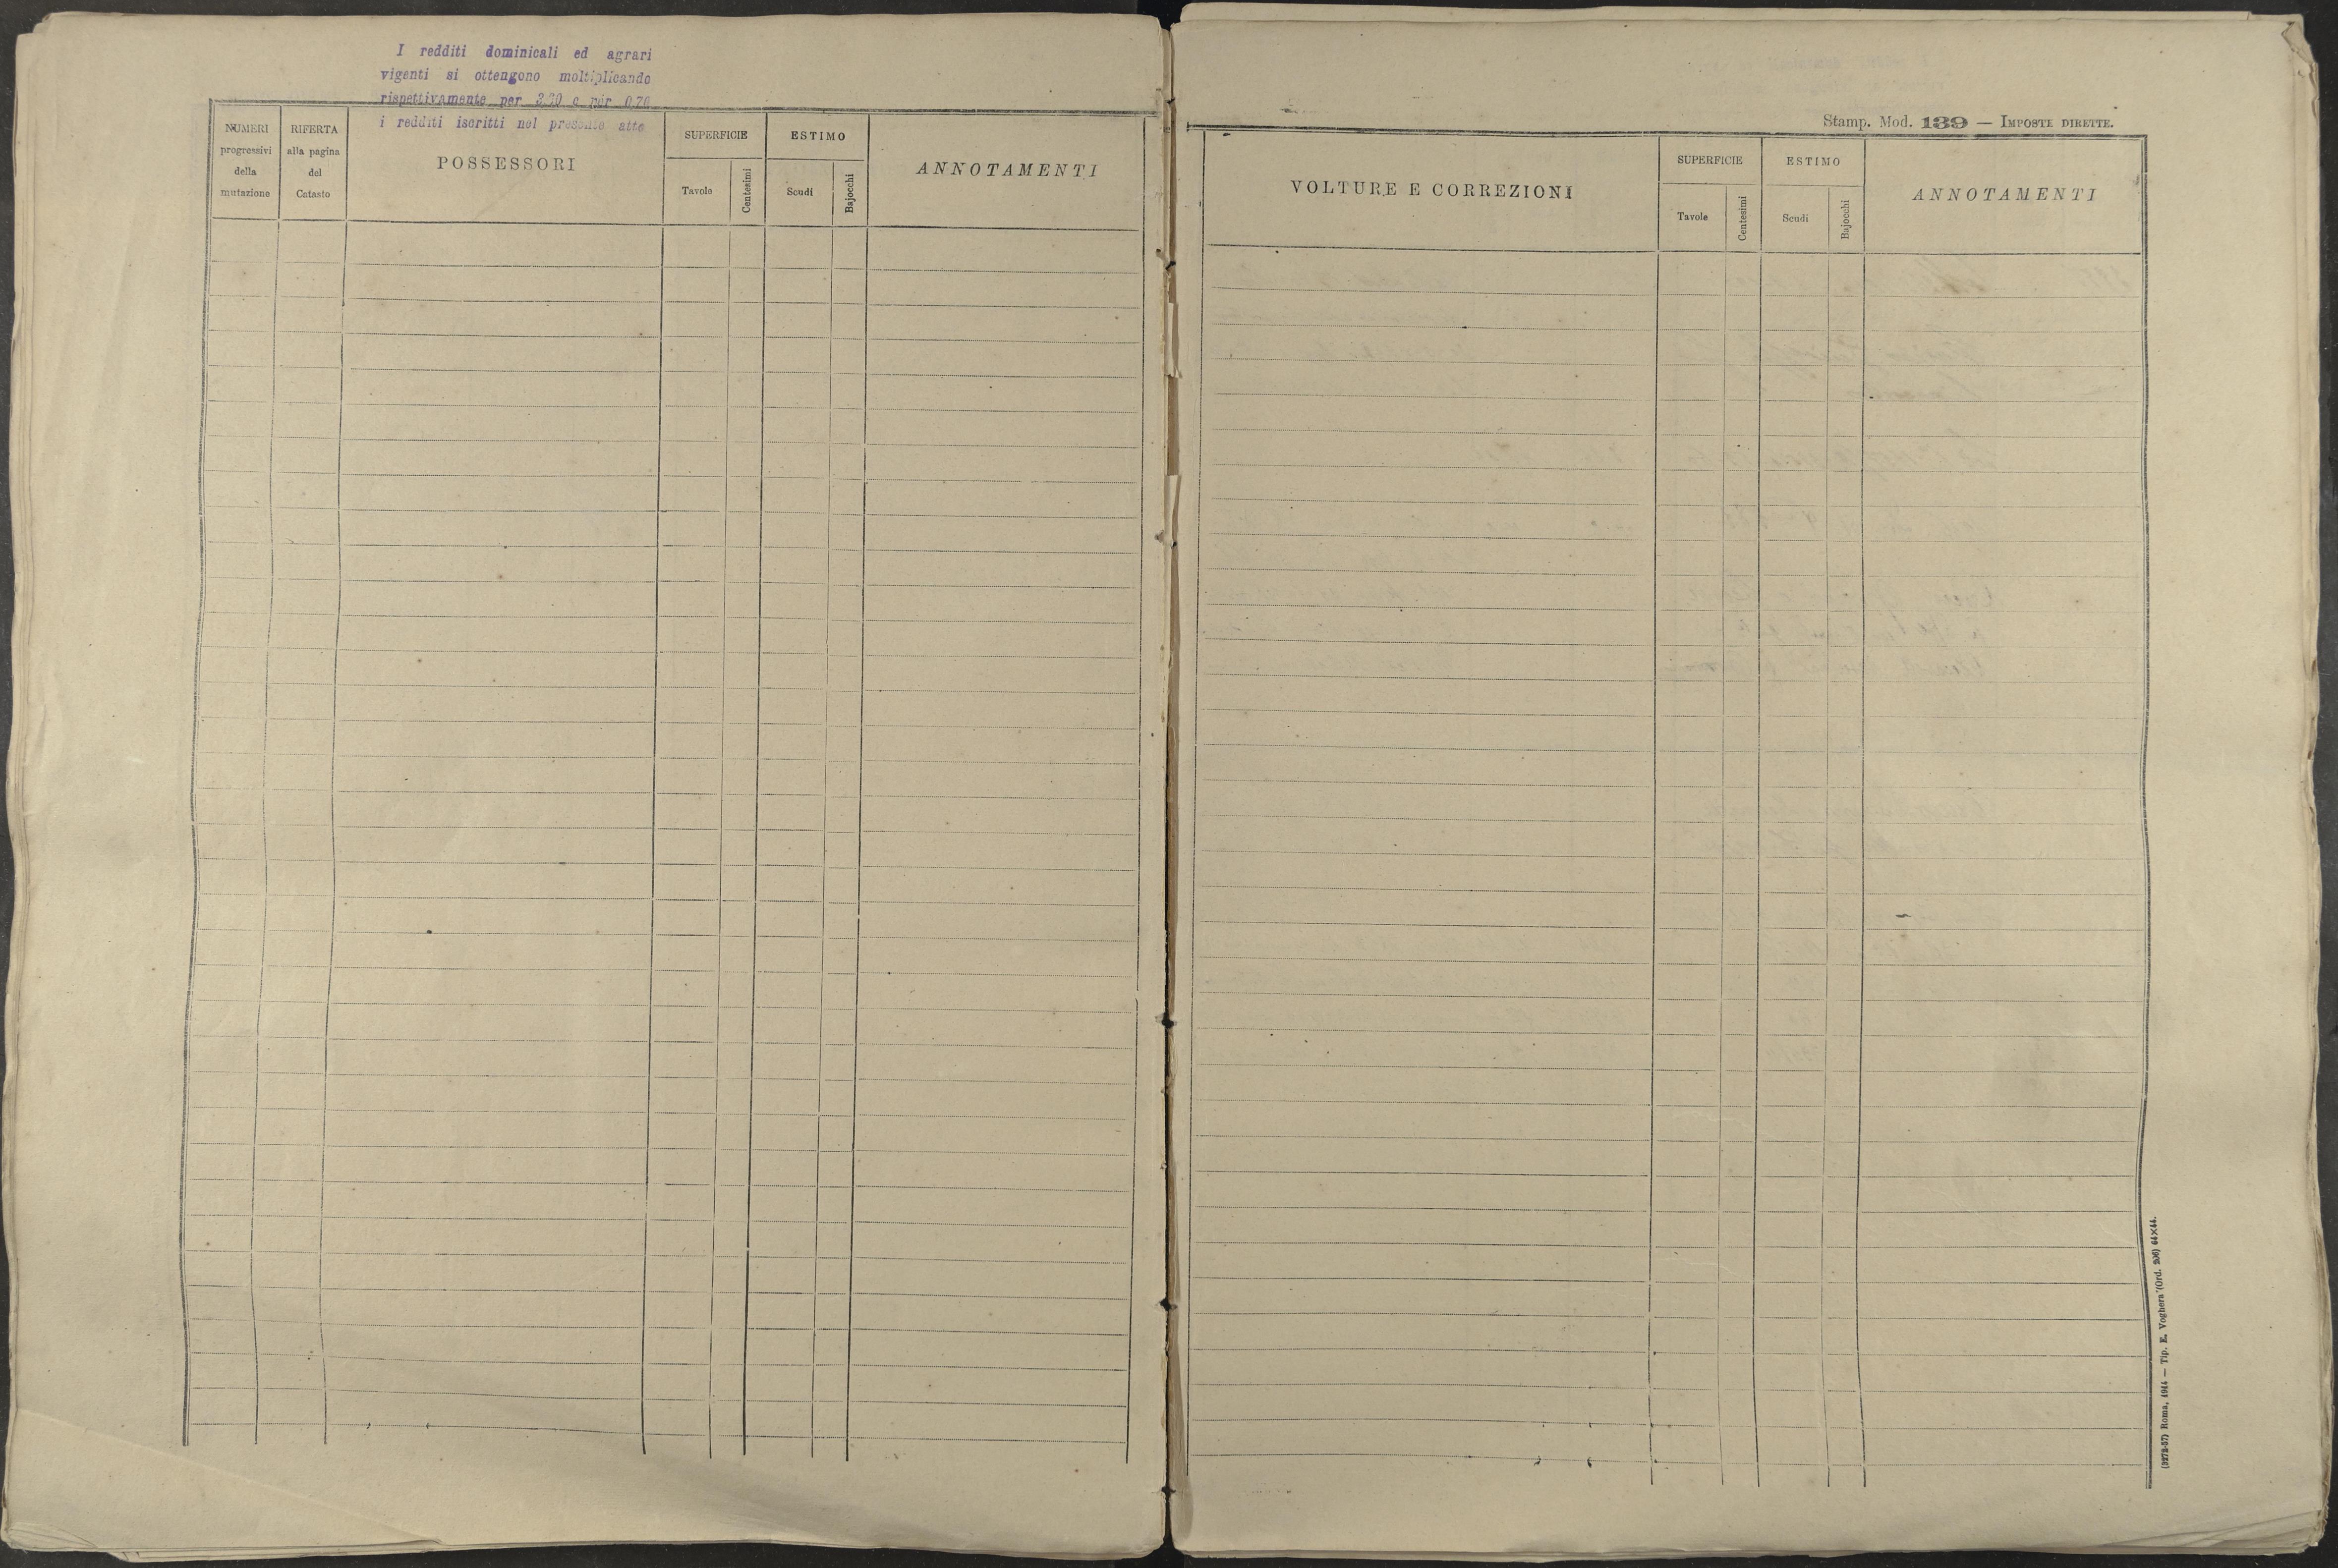 I redditi dominicali ed agrari
vigenti si ottengono moltiplicando
rispettivamente per e per 0,70
i redditi iscritti nel presente atto
NUMERI
progressivi
della
mutazione
RIFERTA
alla pagina
del
Catasto
POSSESSORI
SUPERFICIE
Tavole
Centesimi
ESTIMO
Scudi
Bajocchi
ANNOTAMENTI
Stamp. Mod. 139 — IMPOSTE DIRETTE.
VOLTURE E CORREZIONI
SUPERFICIE
Tavole
Centesimi
ESTIMO
Scudi
Bajocchi
ANNOTAMENTI
(3272-57) Roma, 1914 — Tip. E. Voghera (Ord. 206) 64×44.